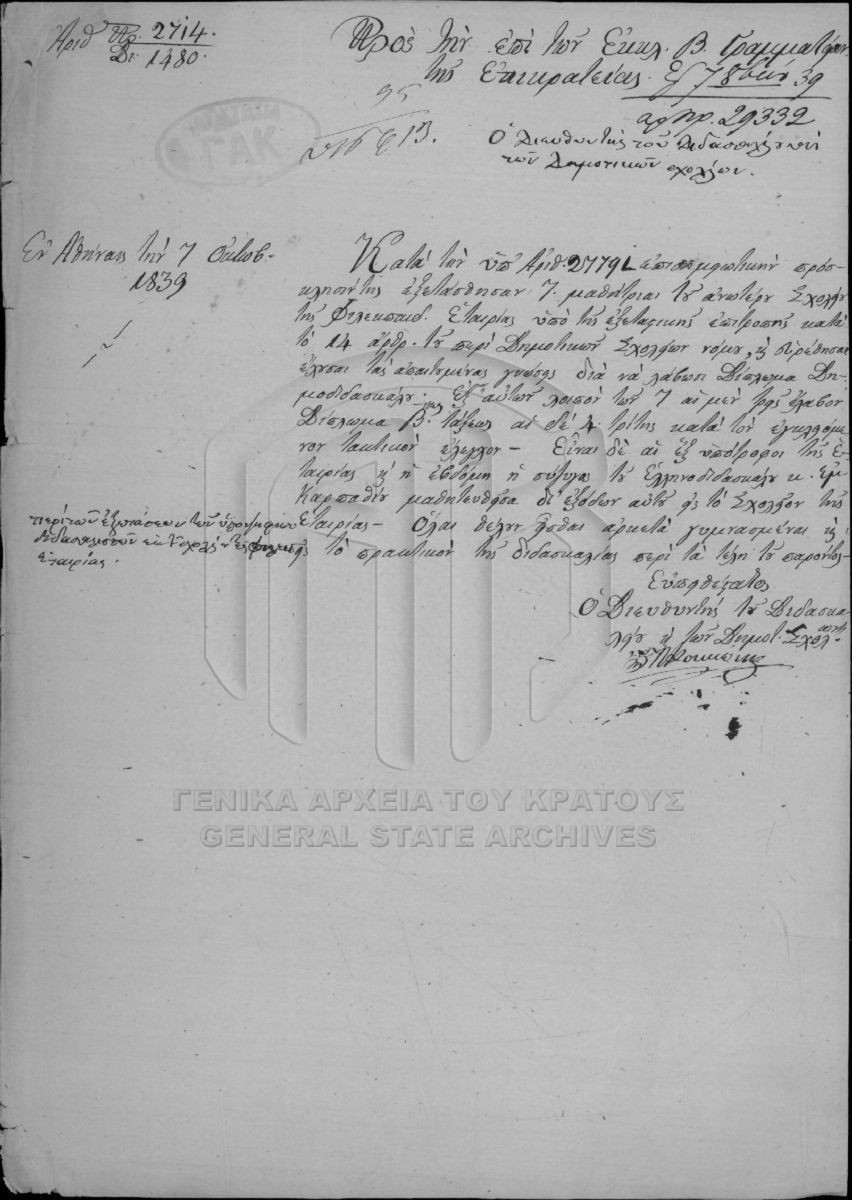 Ἀριθ Πρ. 2714.
Δι. 1480.
Πρὸς τὴν ἐπὶ τῶν Ἐκκλ. Β. Γραμματείαν
τῆς Ἐπικρατείας. 7 8βρίου 39
αρ Πρ. 29332
Ὁ Διευθυντὴς τοῦ Διδασκαλείου καὶ
τῶν Δημοτικῶν σχολείων.
ΓΑΚ
Ἐν Ἀθήναις τὴν 7 Ὀκτωβ-
1839
Κατὰ τὴν ὑπ' Ἀριθ. 27791 πρόσ-
κλησίν της ἐξετάσθησαν 7. μαθήτριαι τοῦ ἀνωτέρου Σχολείου
τῆς Φιλεκπαιδ. Ἑταιρίας ὑπὸ τῆς ἐξεταστικῆς ἐπιτροπῆς κατὰ
τὸ 14 ἄρθρ. τοῦ περὶ Δημοτικῶν Σχολείων νόμου, καὶ εὑρέθησαν
ἔχουσαι τὰς ἀπαιτουμένας γνώσεις διὰ νὰ λάβωσι Δίπλωμα Δη-
μοδιδασκάλου. Ἐξ αὐτῶν λοιπὸν τῶν 7 αἱ μὲν τρεῖς ἔλαβον
Δίπλωμα Βας τάξεως αἱ δὲ 4. τρίτης κατὰ τὸν ἐγκλειόμε
νον τακτικὸν ἔλεγχον – Εἶναι δὲ αἱ ἓξ ὑπότροφοι τῆς Ἑ-
ταιρίας καὶ ἡ ἑβδόμη ἡ σύζυγος τοῦ Ἑλληνοδιδασκάλου κ.
Καρπαθίου μαθητευθεῖσα δι' ἐξόδων αὐτοῦ εἰς τὸ Σχολεῖον τῆς
Ἑταιρίας – Ὅλαι θέλουν εἶσθαι ἀρκετὰ γυμνασμέναι καὶ
εἰς τὸ πρακτικὸν τῆς διδασκαλίας περὶ τὰ τέλη τοῦ παρόντος –
περὶ τῶν ἐξετάσεων τῶν ὑποψηφίων
διδασκαλισσῶν
Ἑταιρίας.
Εὐπειθέστατος
Ὁ Διευθυντὴς τοῦ Διδασκα
λείου καὶ τῶν Δημοτ. Σχολ-
Κοκκώνης
ΓΕΝΙΚΑ ΑΡΧΕΙΑ ΤΟΥ ΚΡΑΤΟΥΣ
GENERAL STATE ARCHIVES